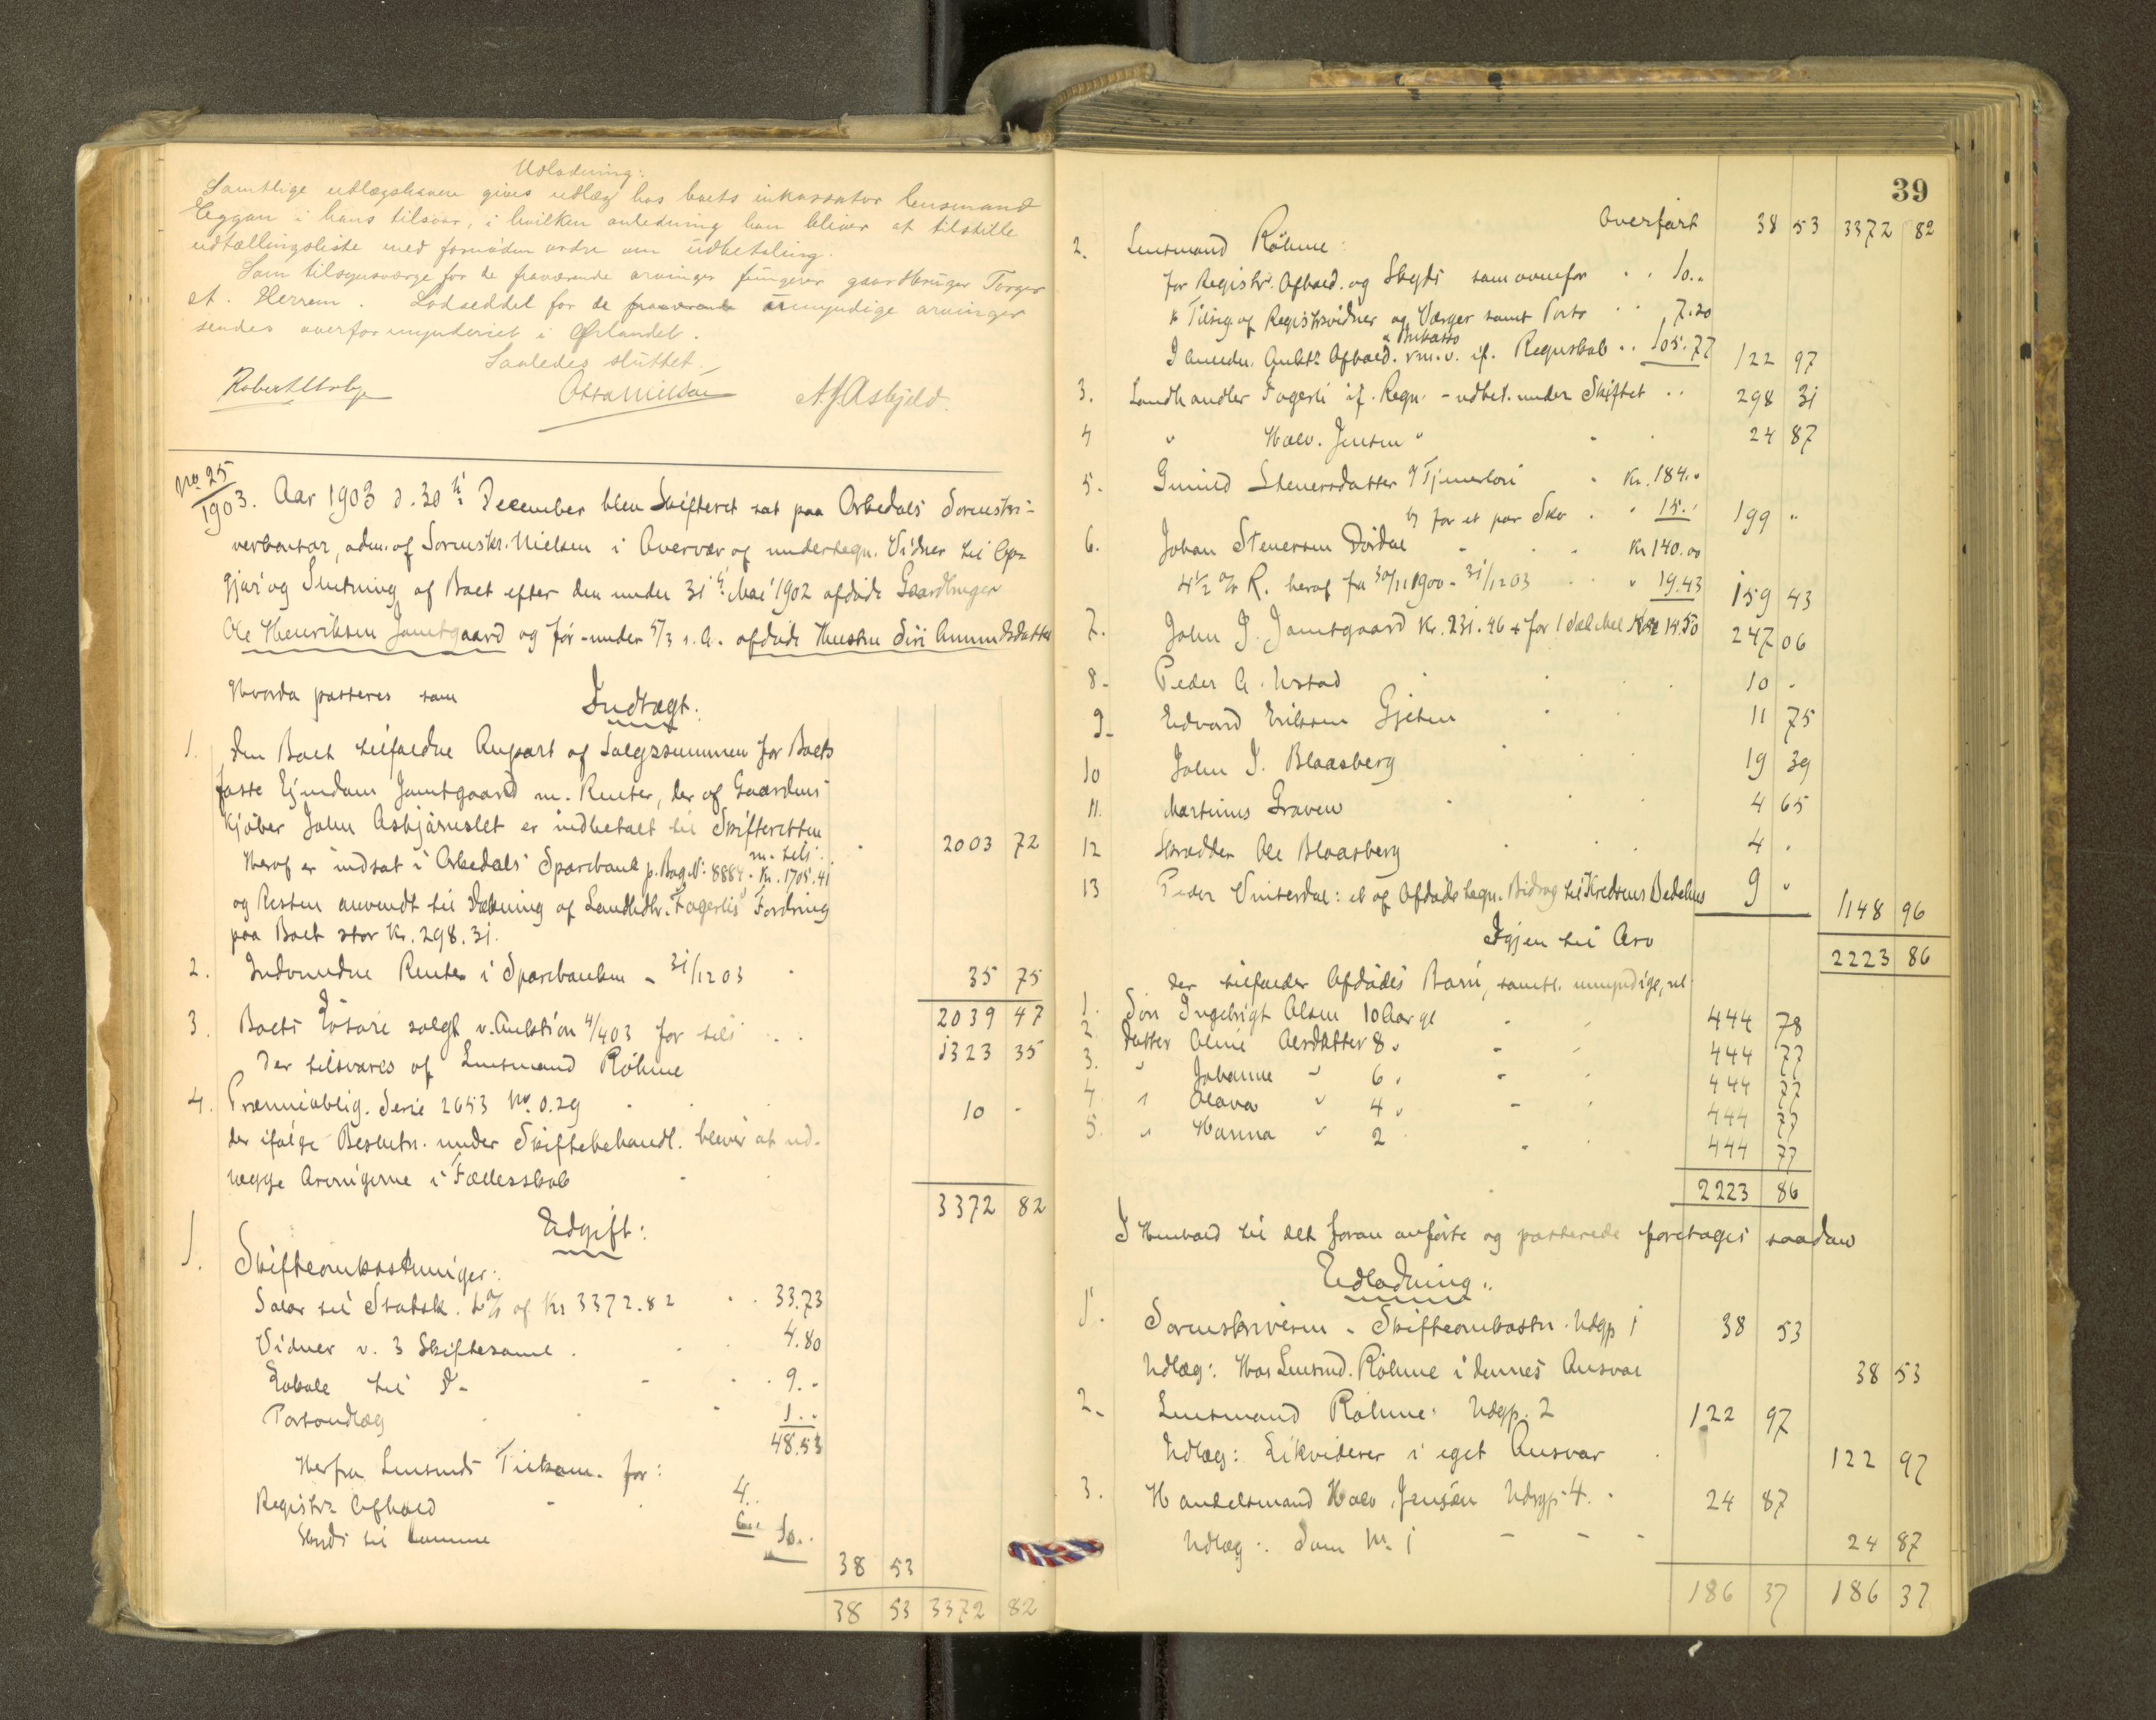 Udlodning:
Samtlige udlægshavere gives udlæg hos boets inkassator lensmand
Eggan i hans tilsvar, i hvilken anledning han bliver at tilstille
udtællingsliste med fornøden ordre om udbetaling.
Som tilsynsværge for de fraværende arvinger fungerer gaardbruger Torger
et. Herrem. Lodseddel for de fraværende umyndige arvinger
sendes overformynderiet i Ørlandet.
Saaledes sluttet.
A. J. Asbjeld.
No 25
1903. Aar 1903 d. 30te December blev Skifteret sat paa Orkedals Sorenskri-
verkontor, adm. af Sorenskr. Nielsen i Overvær af undertegn. Vidner til Op-
gjør og Slutning af Boet efter den under 31te Mai 1902 afdøde Gaardbruger
Ole Henriksen Jamtgaard og før - under 5/3 s. A. - afdøde Hustru Siri Amundsdatter
Hvorda posteres som Indtægt:
1. Den Boet tilfaldne Anpart af Salgssummen for Boets
faste Ejendom Jamtgaard m. Renter, der af Gaardens
Kjøber John Asbjørnslet er indbetalt til Skifteretten
m. tils. 2003 72
Heraf er indsat i Orkedals Sparebank p. Bog N: 8884 - Kr. 1705.41
og Resten anvendt til Dækning af Landhdlr. Fagerlis Fordring
paa Boet stor Kr. 298.31.
2. Indvundne Renter i Sparebanken - 31/12 03 35 75
2039 47
3. Boets Løsøre solgt v. Auktion 4/4 03 for tils. 1323 35
Der tilsvares af Lensmand Röhme
4. Præmieoblig. Serie 2653 No. 0.29 10 -
der ifølge Beslutn. under Skiftebehandl. bliver at ud-
lægge Arvingerne i Fællesskab
3372 82
Udgift:
1. Skifteomkostninger:
Salær til Statsk. 1 % af Kr 3372.82 33.73
Vidner v. 3 Skiftesaml. 4.80
Lokale til D- 9.-
Portoudlæg 1.-
48.53
Herfra Lensmds Tilkom. for:
Registr. Afhold 4..
Skyds til samme 6.. 10..
38 53
38 53 3372 82
39
Overført 38 53 3372 82
2. Lensmand Röhme:
for Registr. Afhold. og Skyds som ovenfor 10..
" Tilsig. af Registrvidner og Værger samt Porto 7.20
I Anledn. Aukts Afhold. & Inkasso m.v. if. Regnskab 105.77 122 97
3. Landhandler Fagerli if. Regn. - udbet. under Skiftet 298 31
4 " Halv. Jensen " 24 87
5. Gunild Stenersdatter a/ Tjenerløn Kr. 184..
b/ for et par Sko " 15.. 199 "
6. Johan Stenersen Dördal Kr 140.00
4½ % R. heraf fra 30/11 1900 - 31/12 03 " 19.43 159 43
7. John J. Jamtgaard Kr. 231.46 + for 1 Sæk Mel Kr 14.50 247 06
8- Peder A. Ustad 10 -
9- Edvard Eriksen Gjeten 11 75
10 John J. Blaasberg 19 39
11. Martinus Graven 4 65
12 Skrædder Ole Blaasberg 4 .
13 Peder Vinterdal: et af Afdøde tegn. Bidrag til Kredsens Bedehus 9 "
1148 96
Igjen til Arv 2223 86
der tilfalder Afdødes Børn, samtl. umyndige, nl.
1. Søn Ingebrigt Olsen 10 Aar gl 444 78
2 Datter Oline Olsdatter 8 " 444 77
3. " Johanne " 6 " 444 77
4 " Olava " 4 " 444 77
5. " Hanna " 2 444 77
2223 86
I Henhold til det foran anførte og posterede foretages saadan
Udlodning:
1. Sorenskriveren - Skifteomkostn. Udgp 1 38 53
Udlæg: Hos Lensmd. Röhme i dennes Ansvar 38 53
2- Lensmand Röhme. Udgp. 2 122 97
Udlæg: Likviderer i eget Ansvar 122 97
3. Handelsmand Halv. Jensen Udgp. 4. 24 87
Udlæg: Som No. 1 24 87
186 37 186 37